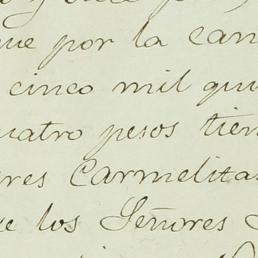 que por la can
cinco mil qui
uatro pesos tien
res Carmelitas
e los Señores